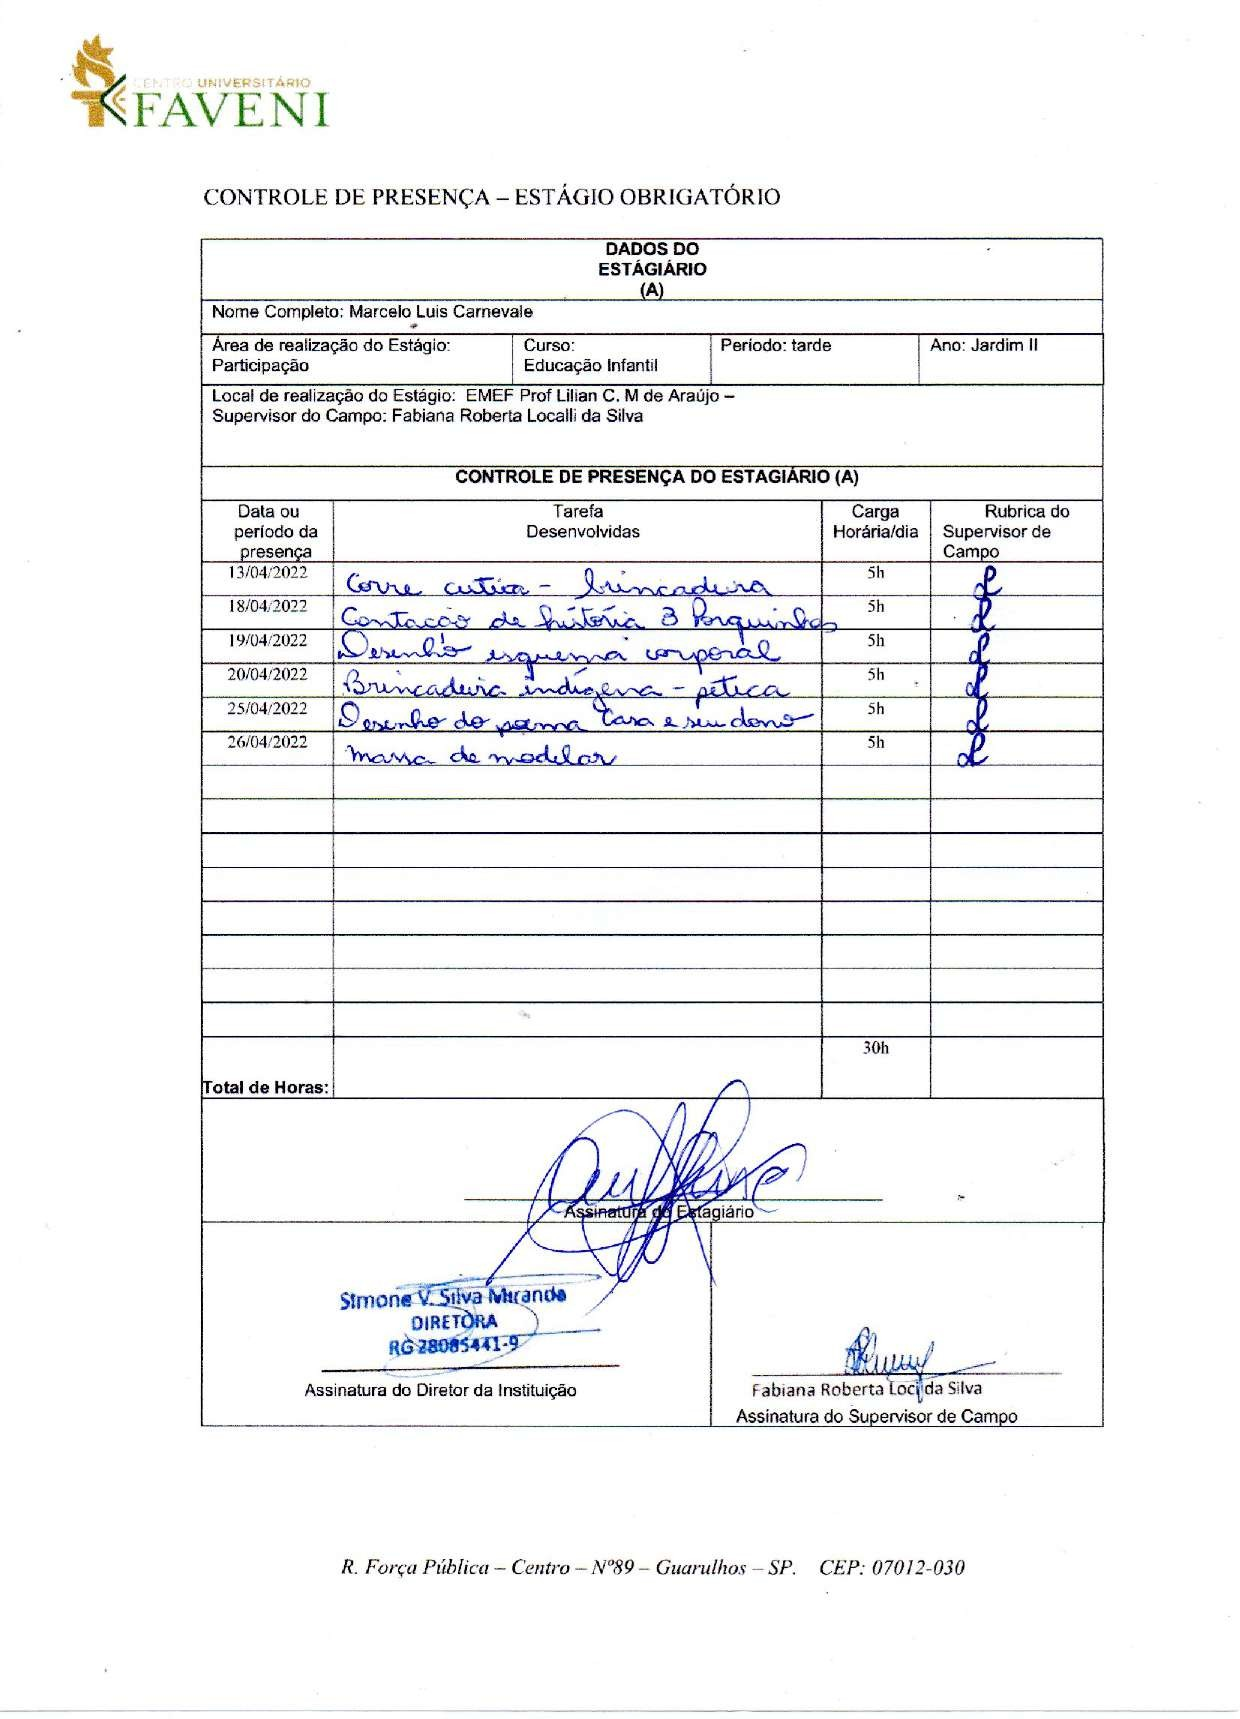 CENTRO UNIVERSITÁRIO
FAVENI
CONTROLE DE PRESENÇA – ESTÁGIO OBRIGATÓRIO
DADOS DO
ESTÁGIÁRIO
(A)
Nome Completo: Marcelo Luis Carnevale
Área de realização do Estágio: Curso: Período: tarde Ano: Jardim II
Participação Educação Infantil
Local de realização do Estágio: EMEF Prof Lilian C. M de Araújo –
Supervisor do Campo: Fabiana Roberta Localli da Silva
CONTROLE DE PRESENÇA DO ESTAGIÁRIO (A)
Data ou Tarefa Carga Rubrica do
período da Desenvolvidas Horária/dia Supervisor de
presença Campo
13/04/2022 Corre cutica – brincadeira 5h
18/04/2022 Contacão de história 3 Porquinhos 5h
19/04/2022 Desenho esquema corporal 5h
20/04/2022 Brincadeira indígena – peteca 5h
25/04/2022 Desenho do poema Casa e seu dono 5h
26/04/2022 Massa de modelar 5h
30h
Total de Horas:
Assinatura do Estagiário
Simone V. Silva Miranda
DIRETORA
RG 28085441-9
Assinatura do Diretor da Instituição
Fabiana Roberta Loci da Silva
Assinatura do Supervisor de Campo
R. Força Pública – Centro – Nº89 – Guarulhos – SP. CEP: 07012-030